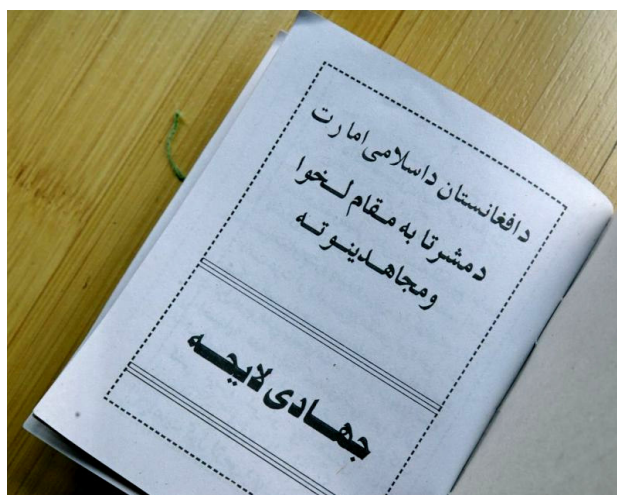 دافغانستان داسلامی امارت
دمشرتا به مـقام لـخوا
ومجاهـدینـو تـه
جهـادی لایحـه